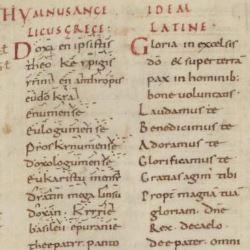 HYMNUS ANGE
LICUS GRECE:
Doxa en ipsistis
theo. Ke epigis
en anthropis
eudokia
enumense
eulogumen se
Proskinumense
Doxologumense
eukaristu mense
megalin su
doxan. Kyrrie
basileu epuranie
thee patir. panto
IDEM
LATINE:
Gloria in excelsis
dō & super terrā
pax in hominib;
bone voluntatis
Laudamus te
Benedicimus te
Adoramus te
Glorificamus te
Gratias agim tibi
Propt magnā tua
gloriam. dne
Rex decaelo
dee pater omni